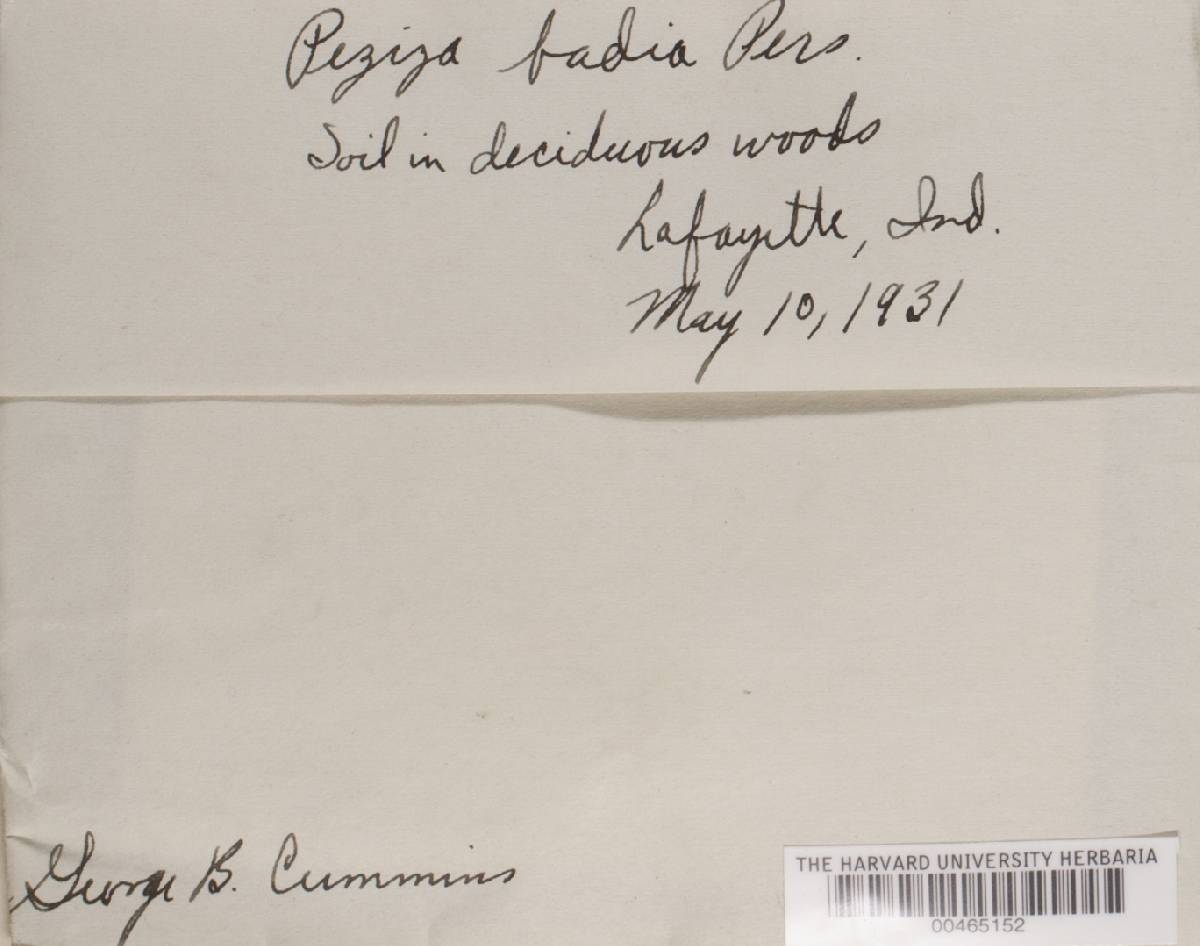 Peziza badia Pers.
Soil in deciduous woods
Lafayette, Ind.
May 10, 1931
George B. Cummins
THE HARVARD UNIVERSITY HERBARIA
00465152